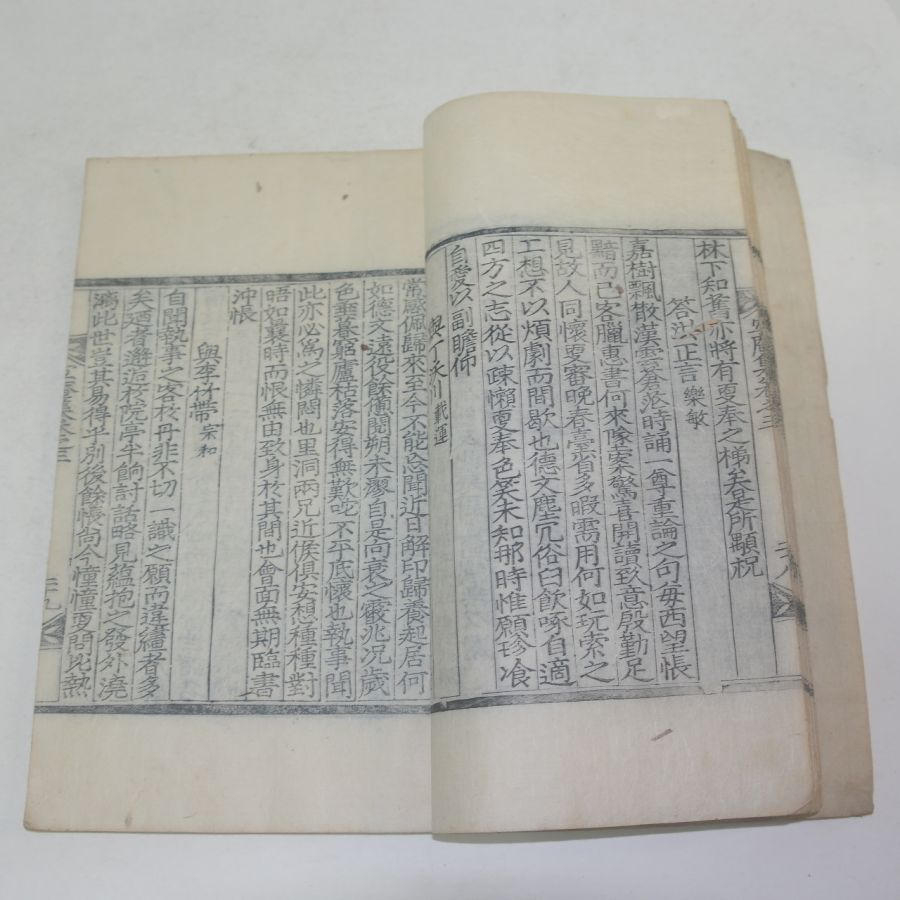 林下知舊亦將有更奉之梯耑是所顒祝
答洪正言 樂敏
嘉樹飄散漢雲蒼茫時誦一尊重論之句每西望悵
黯而已客臘惠書何來墜案驚喜開讀致意殷勤足
見故人同懷更審晩春臺省多暇需用何如玩索之
工想不以煩劇而間歇也德文塵冗俗臼飮啄自適
四方之志從以疎懶更奉色笑未知那時惟願珍飡
自愛以副瞻仰
與丁永川 載運
常感佩歸來至今不能忘聞近日解印歸養起居何
如德文遠役餘憊閱朔未瘳自是向衰之徵兆況歲
色垂暮窮廬枯落安得無歎咜不平底懷也執事聞
此亦必爲之憐悶也里洞兩兄近候俱安想種種對
晤如曩時而悵無由致身於其間也會面無期臨書
沖悵
與李竹帶 宗和
自聞執事之客於丹非不切一識之願而違繣者多
矣廼者邂逅於院亭半餉討話略見蘊抱之發外澆
漓此世豈其易得乎別後餘悵尙今憧憧更問比熱
卷之三
二十八
二十九